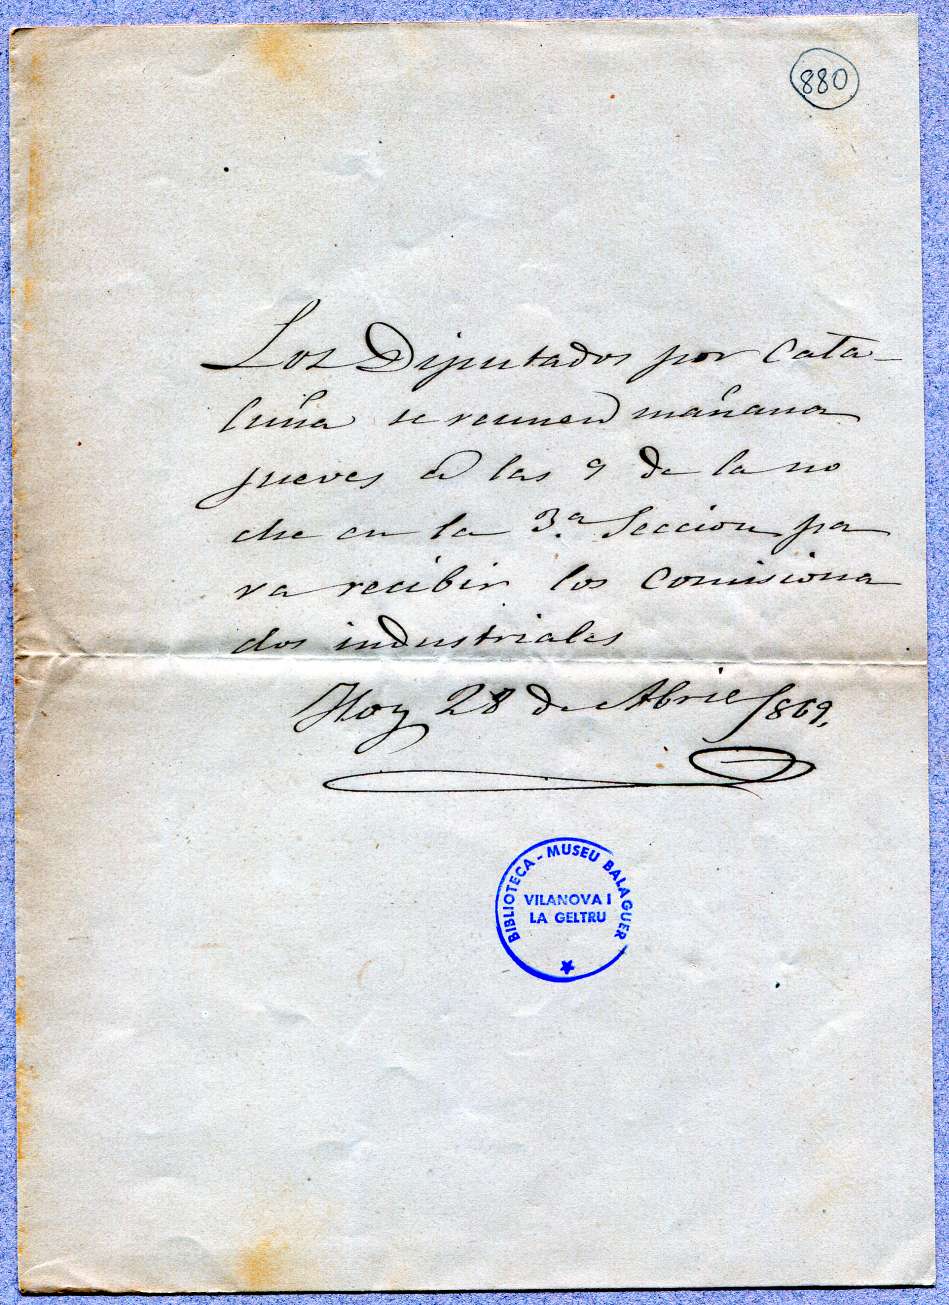 880
Los Diputados por Cata-
luña se reunen mañana
jueves á las 9 de la no
che en la 3.ª Seccion pa
ra recibir los comisiona
dos industriales
Hoy 28 de Abril 1869.
BIBLIOTECA - MUSEU BALAGUER
VILANOVA I
LA GELTRU